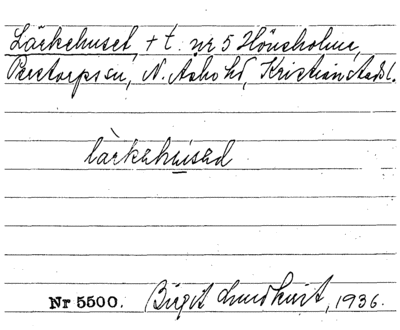 Läckehuset, + t. nr 5 Hönsholme,
Perstorps sn, N. Åsbo hd, Kristianstads l.
làckahùsad
Nr 5500. Birgit Lundkvist, 1936.